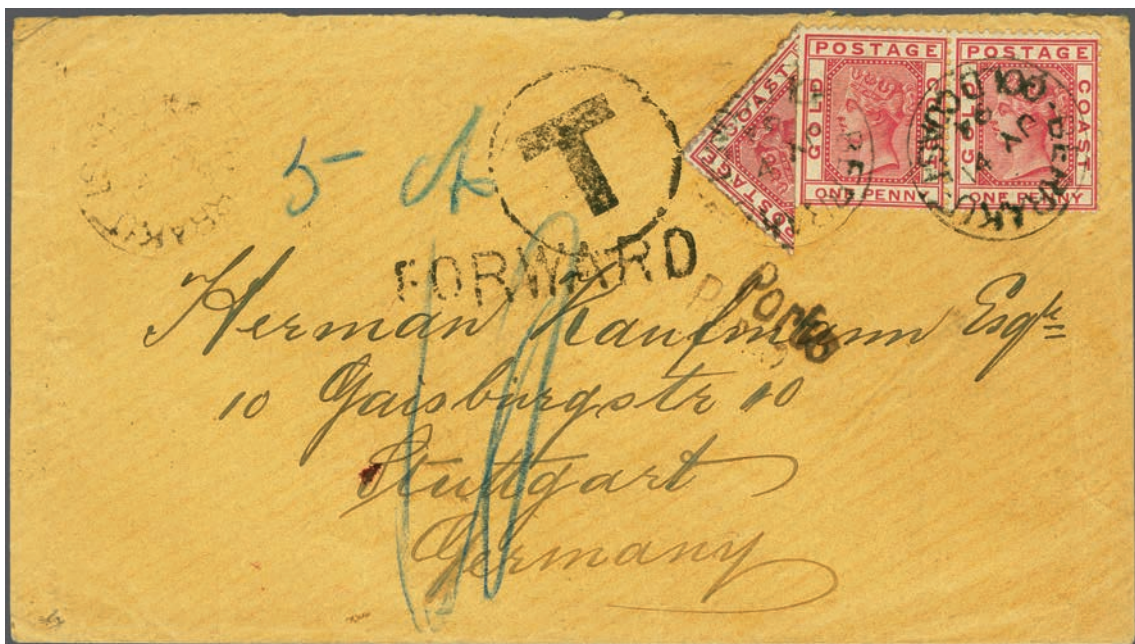 POSTAGE
GOLD COAST
ONE PENNY
POSTAGE
GOLD COAST
ONE PENNY
POSTAGE
COAST
T
5 ct
FORWARD
Porto
10
Herman Kaufmann Esqre
10 Gaisburgstr 10
Stuttgart
Germany